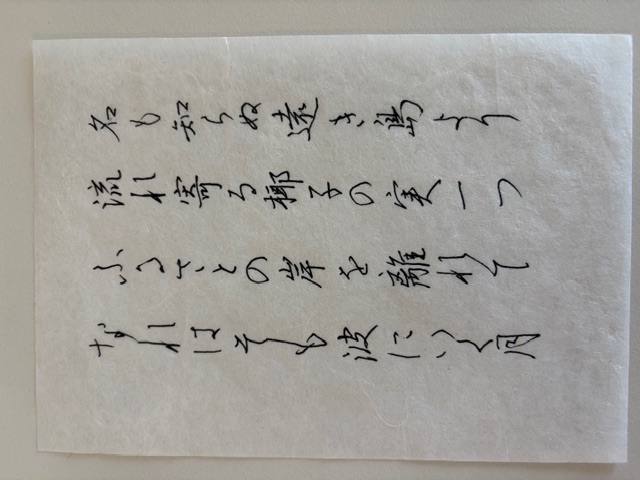 名も知らぬ遠き島より
流れ寄る椰子の実一つ
ふるさとの岸を離れて
なれはそも波にいく月